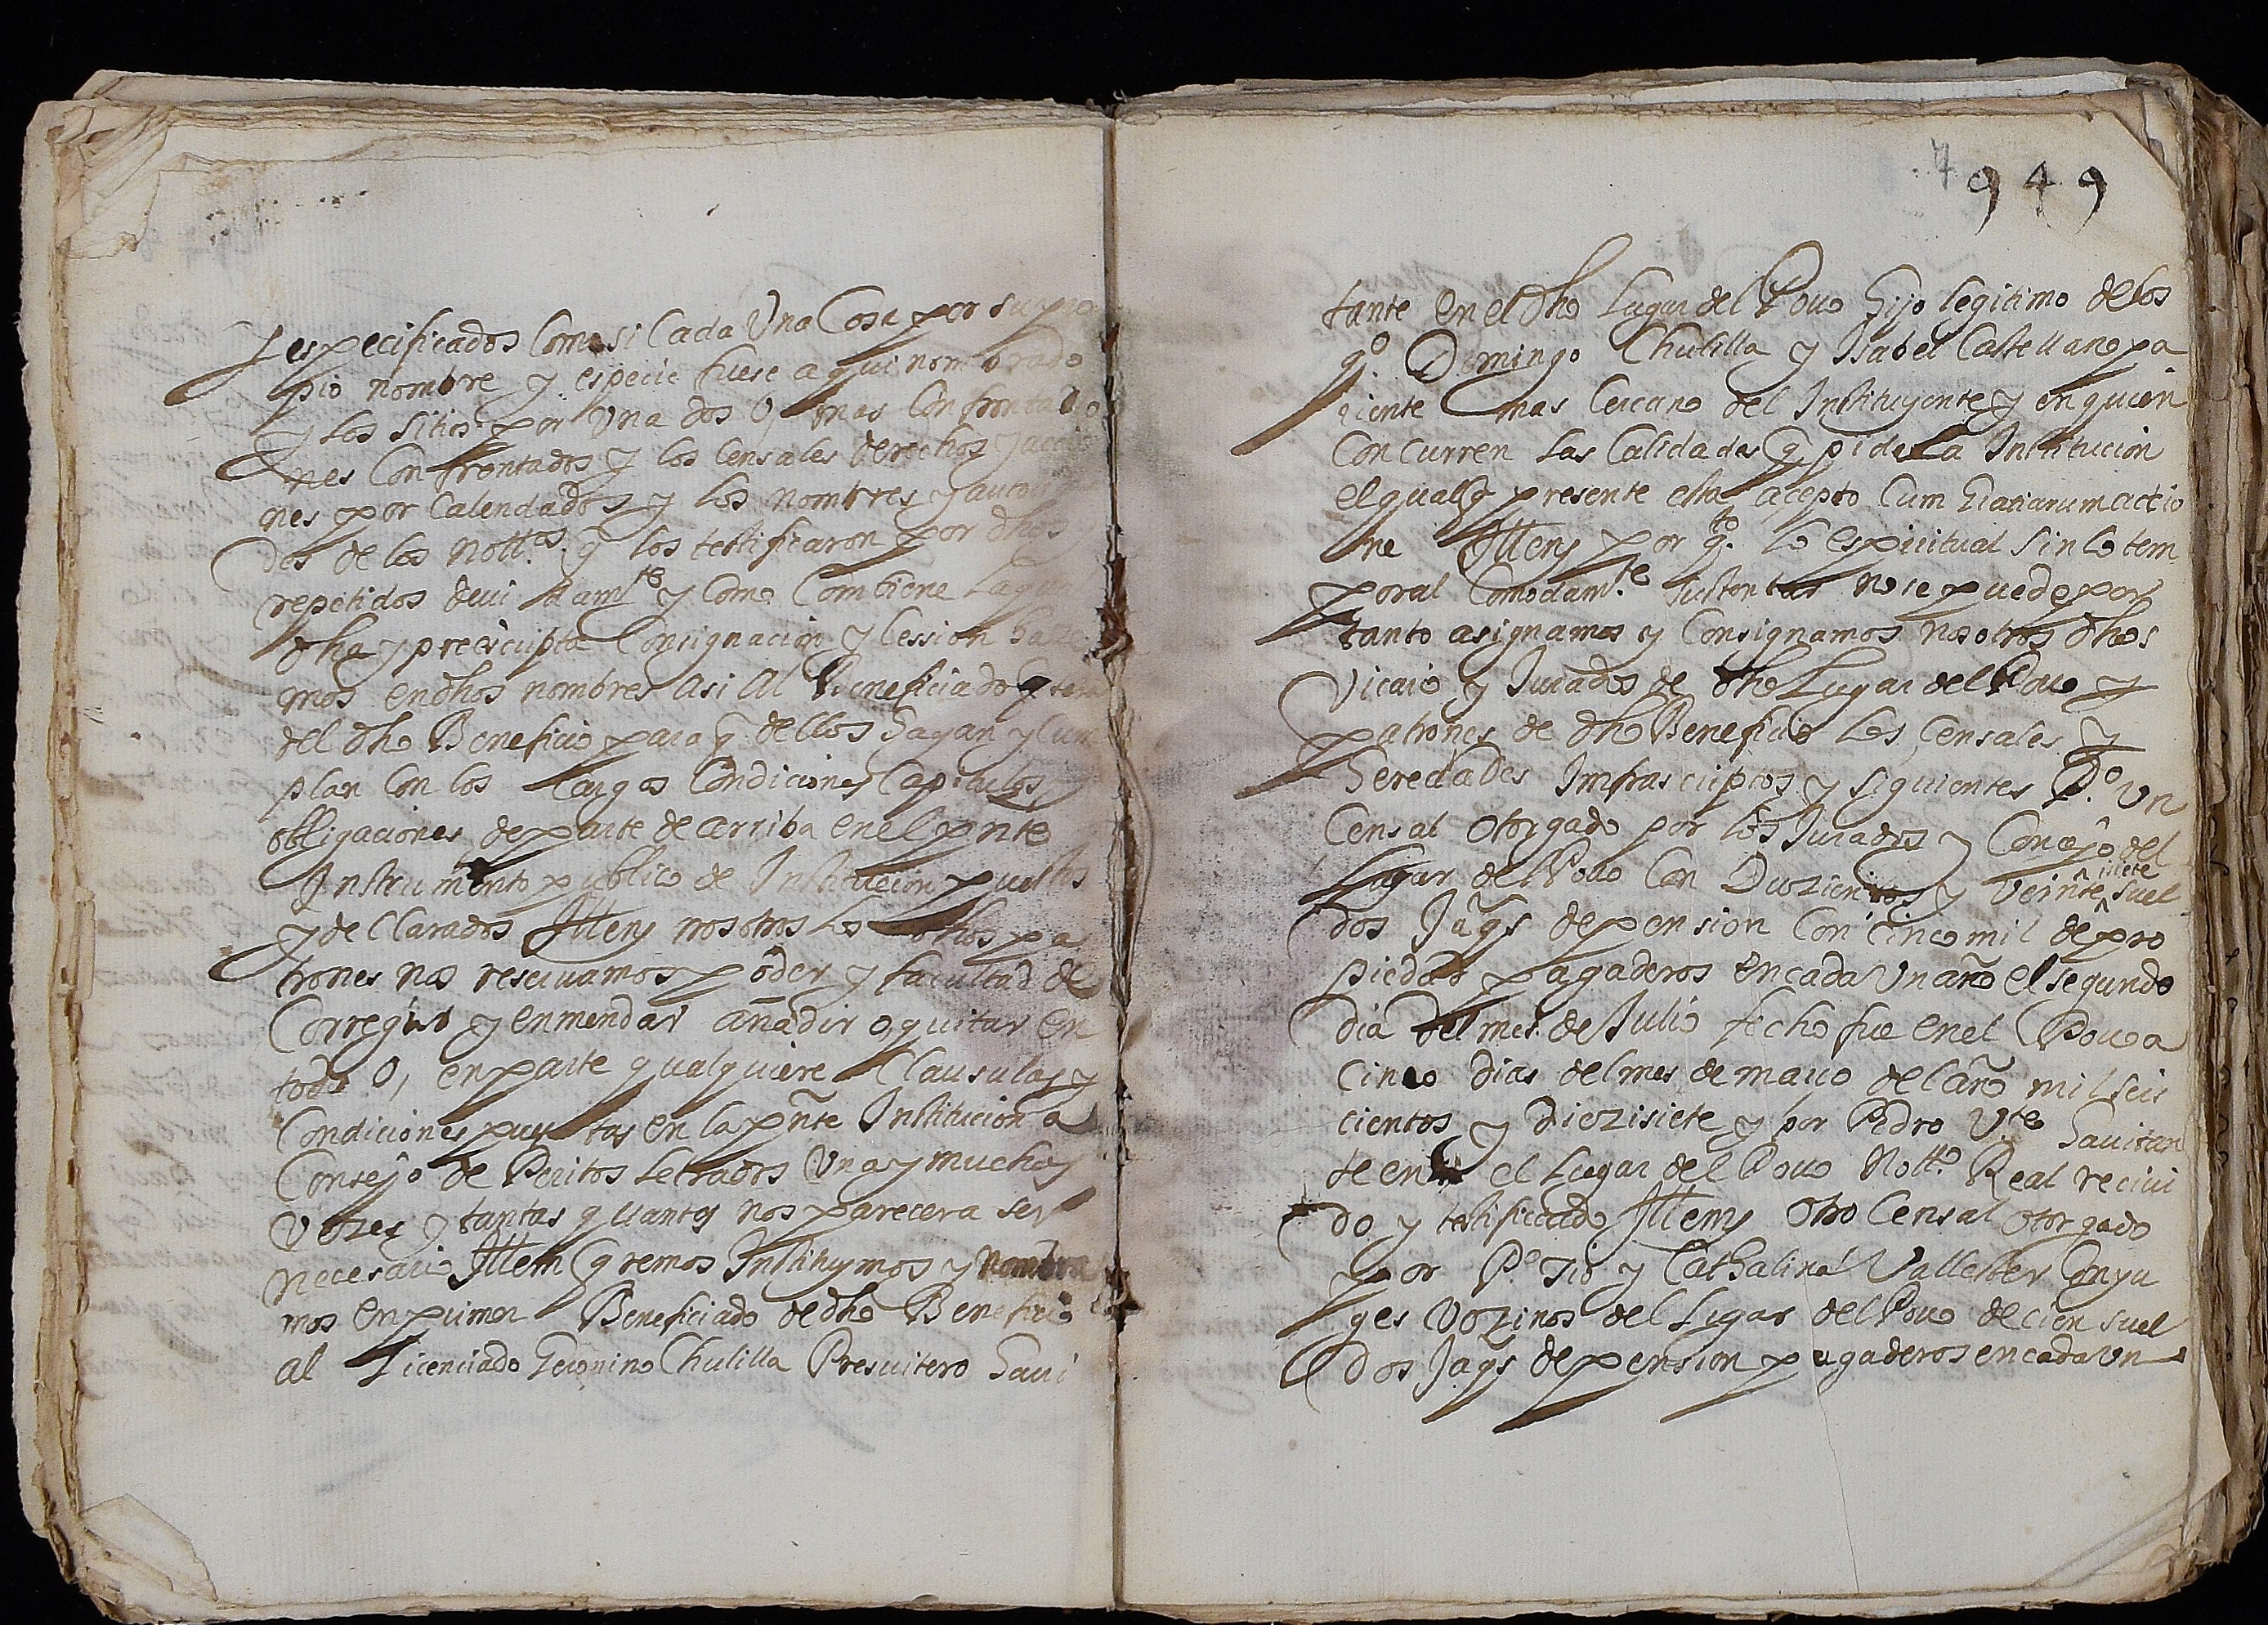 y especificados Como si Cada Vna Cosa por su pro
pio nombre y especie fuese aqui nombrado
y los sitios por Vna dos O, mas Confrontacio
nes Confrontados y los Censales derechos y accio
nes por Calendados y los nombres y
dos de los nottos. q los testificaron por dhos y
repetidos deuidamte y Como Combiene La
dha y preèscripta Consignacion y Cession haze
mos en dhos nombres asi al Beneficiado q sera
del dho Beneficio para q dellos hagan y Cum
plan Con los Cargos Condiciones Capitulos,
obligaciones de parte de arriba en el pnte
Instrumento publico de Institucion puestos
y de Clarados Ittem nosotros los dhos pa
trones nos reseruamos poder y facultad de
Corregir y enmendar añadir o, quitar en
todo O, en parte qualquiere Clausulas y
Condiciones puestas en la pñte Institucion a
Consejo de Peritos Letrados Vna y muchas
Vezes y tantas quantas nos parecera ser
necesario Ittem qremos Instituymos y Nombra
mos en primer Beneficiado de dho Beneficio
al Licenciado Geronino Chulilla Presuitero haui
949
tante en el dho Lugar del Pouo Hijo legitimo de los
qo. Domingo Chulilla y Isabel Castellano pa
riente mas Cercano del Instituyente y en quien
Concurren las Calidades q pide La Institucion
el qual q presente esta acepto Cum Graciarum actio
ne Ittem por qto. lo espiritual sin lo tem
poral Comodamte. sustentar no se puede por
tanto asignamos y Consignamos nosotros dhos
Vicario y Jurados de dho Lugar del Pouo y
patrones de dho Beneficio los Censales y
heredades Infrascriptos y siguientes Po. Vn
Censal otorgado por los Jurados y Concejo del
Lugar del Pouo Con Duzientos y Veinte siete suel
dos Jaq̃s de pension Con cinco mil de pro
piedad pagaderos en cada Vn año el segundo
dia del mes de Julio fecho fue en el Pouo a
cinco dias del mes de março del año mil seis
cientos y Diezisiete y por Pedro Vte hauitan
te en el Lugar del Pouo Notto. Real reciui
do y testificado Ittem otro Censal otorgado
por Po. Jio y Cathalina Vallester Conyu
ges Vezinos del Lugar del Pouo de cien suel
dos Jaq̃s de pension pagaderos en cada Vn